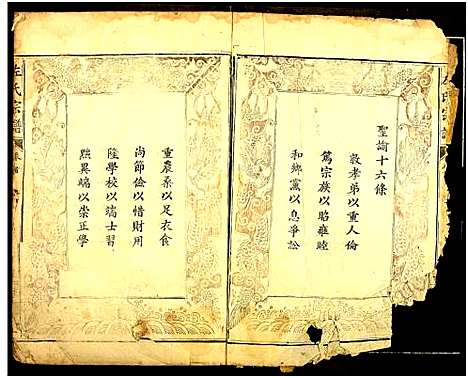 聖諭十六條
敦孝弟以重人倫
篤宗族以昭雍睦
和鄉黨以息爭訟
重農桑以足衣食
尚節儉以惜財用
隆學校以端士習
黜異端以崇正學
左氏宗譜